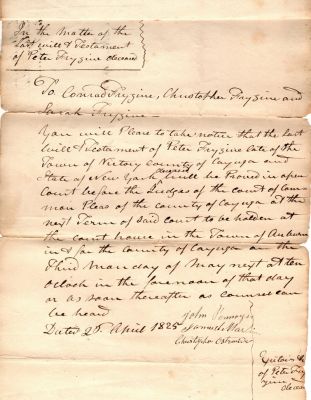 In the Matter of the
Last will & Testament
of Peter Frygine deceased
To Conrad Frygine, Christopher Frygine and
Sarah Frygine
You will Please to take notice that the last
Will & Testament of Peter Frygine late of the
Town of Victory County of Cayuga and
State of New York deceased Will be Proved in open
Court before the Judges of the court of Com-
mon Pleas of the county of Cayuga at the
next Term of said court to be holden at
the court house in the Town of Auburn
in & for the County of Cayuga on the
third Monday of May next at ten
oclock in the forenoon of that day
or as soon thereafter as counsel can
be heard
Dated 25 April 1825
John
Samuel
Christopher
of Peter Fry
gine
deceas